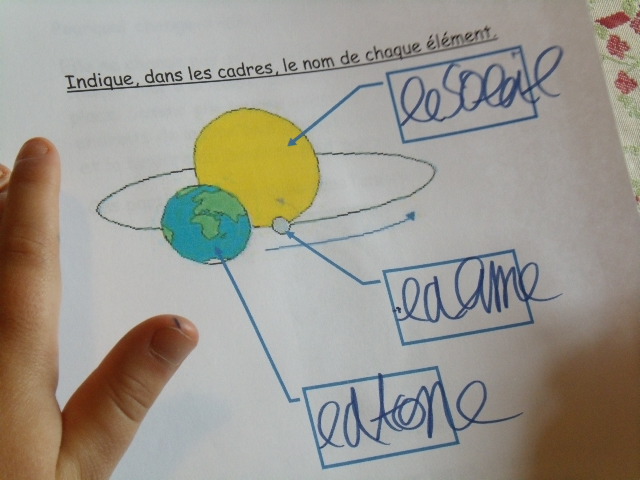 Indique, dans les cadres, le nom de chaque élément.
le Soleil
la lune
la terre